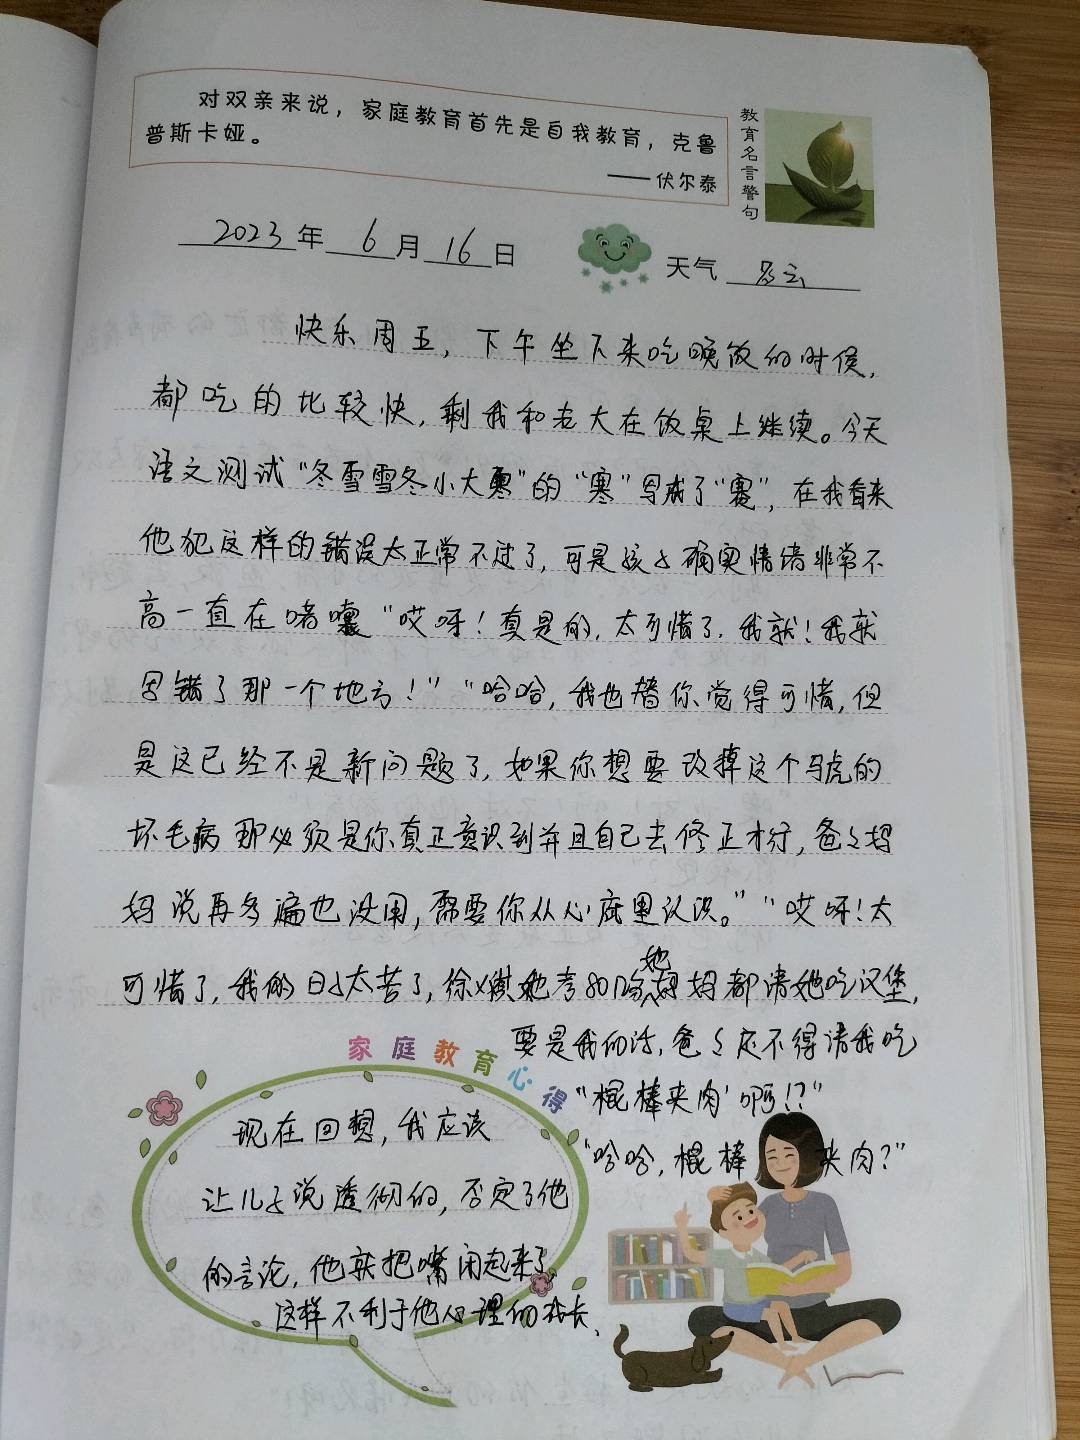 对双亲来说，家庭教育首先是自我教育，克鲁
普斯卡娅。
——伏尔泰
教育名言警句
2023年6月16日
天气 多云
快乐周五，下午坐下来吃晚饭的时候，
都吃的比较快，剩我和老大在饭桌上继续。今天
语文测试“冬雪雪冬小大寒”的“寒”写成了“寒”，在我看来
他犯这样的错误太正常不过了，可是孩子确实情绪非常不
高一直在嘟囔“哎呀！真是的，太可惜了，我就！我就
因错了那一个地方！”“哈哈，我也替你觉得可惜，但
是这已经不是新问题了，如果你想要改掉这个马虎的
坏毛病那必须是你真正意识到并且自己去修正才行，爸爸妈
妈说再多遍也没用，需要你从心底里认识。”“哎呀！太
可惜了，我的日子太苦了，徐 她考80几分她妈妈都请她吃汉堡，
要是我的话，爸爸还不得请我吃
“棍棒夹肉’啊！？”
“哈哈，棍棒夹肉？”
家庭教育心得
现在回想，我应该
让儿子说透彻的，否定了他
的言论，他就把嘴闭起来了，
这样不利于他心理的成长、